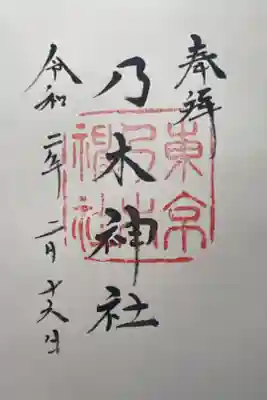 奉拝
乃木神社
令和二年二月十六日
東京
乃木
神社